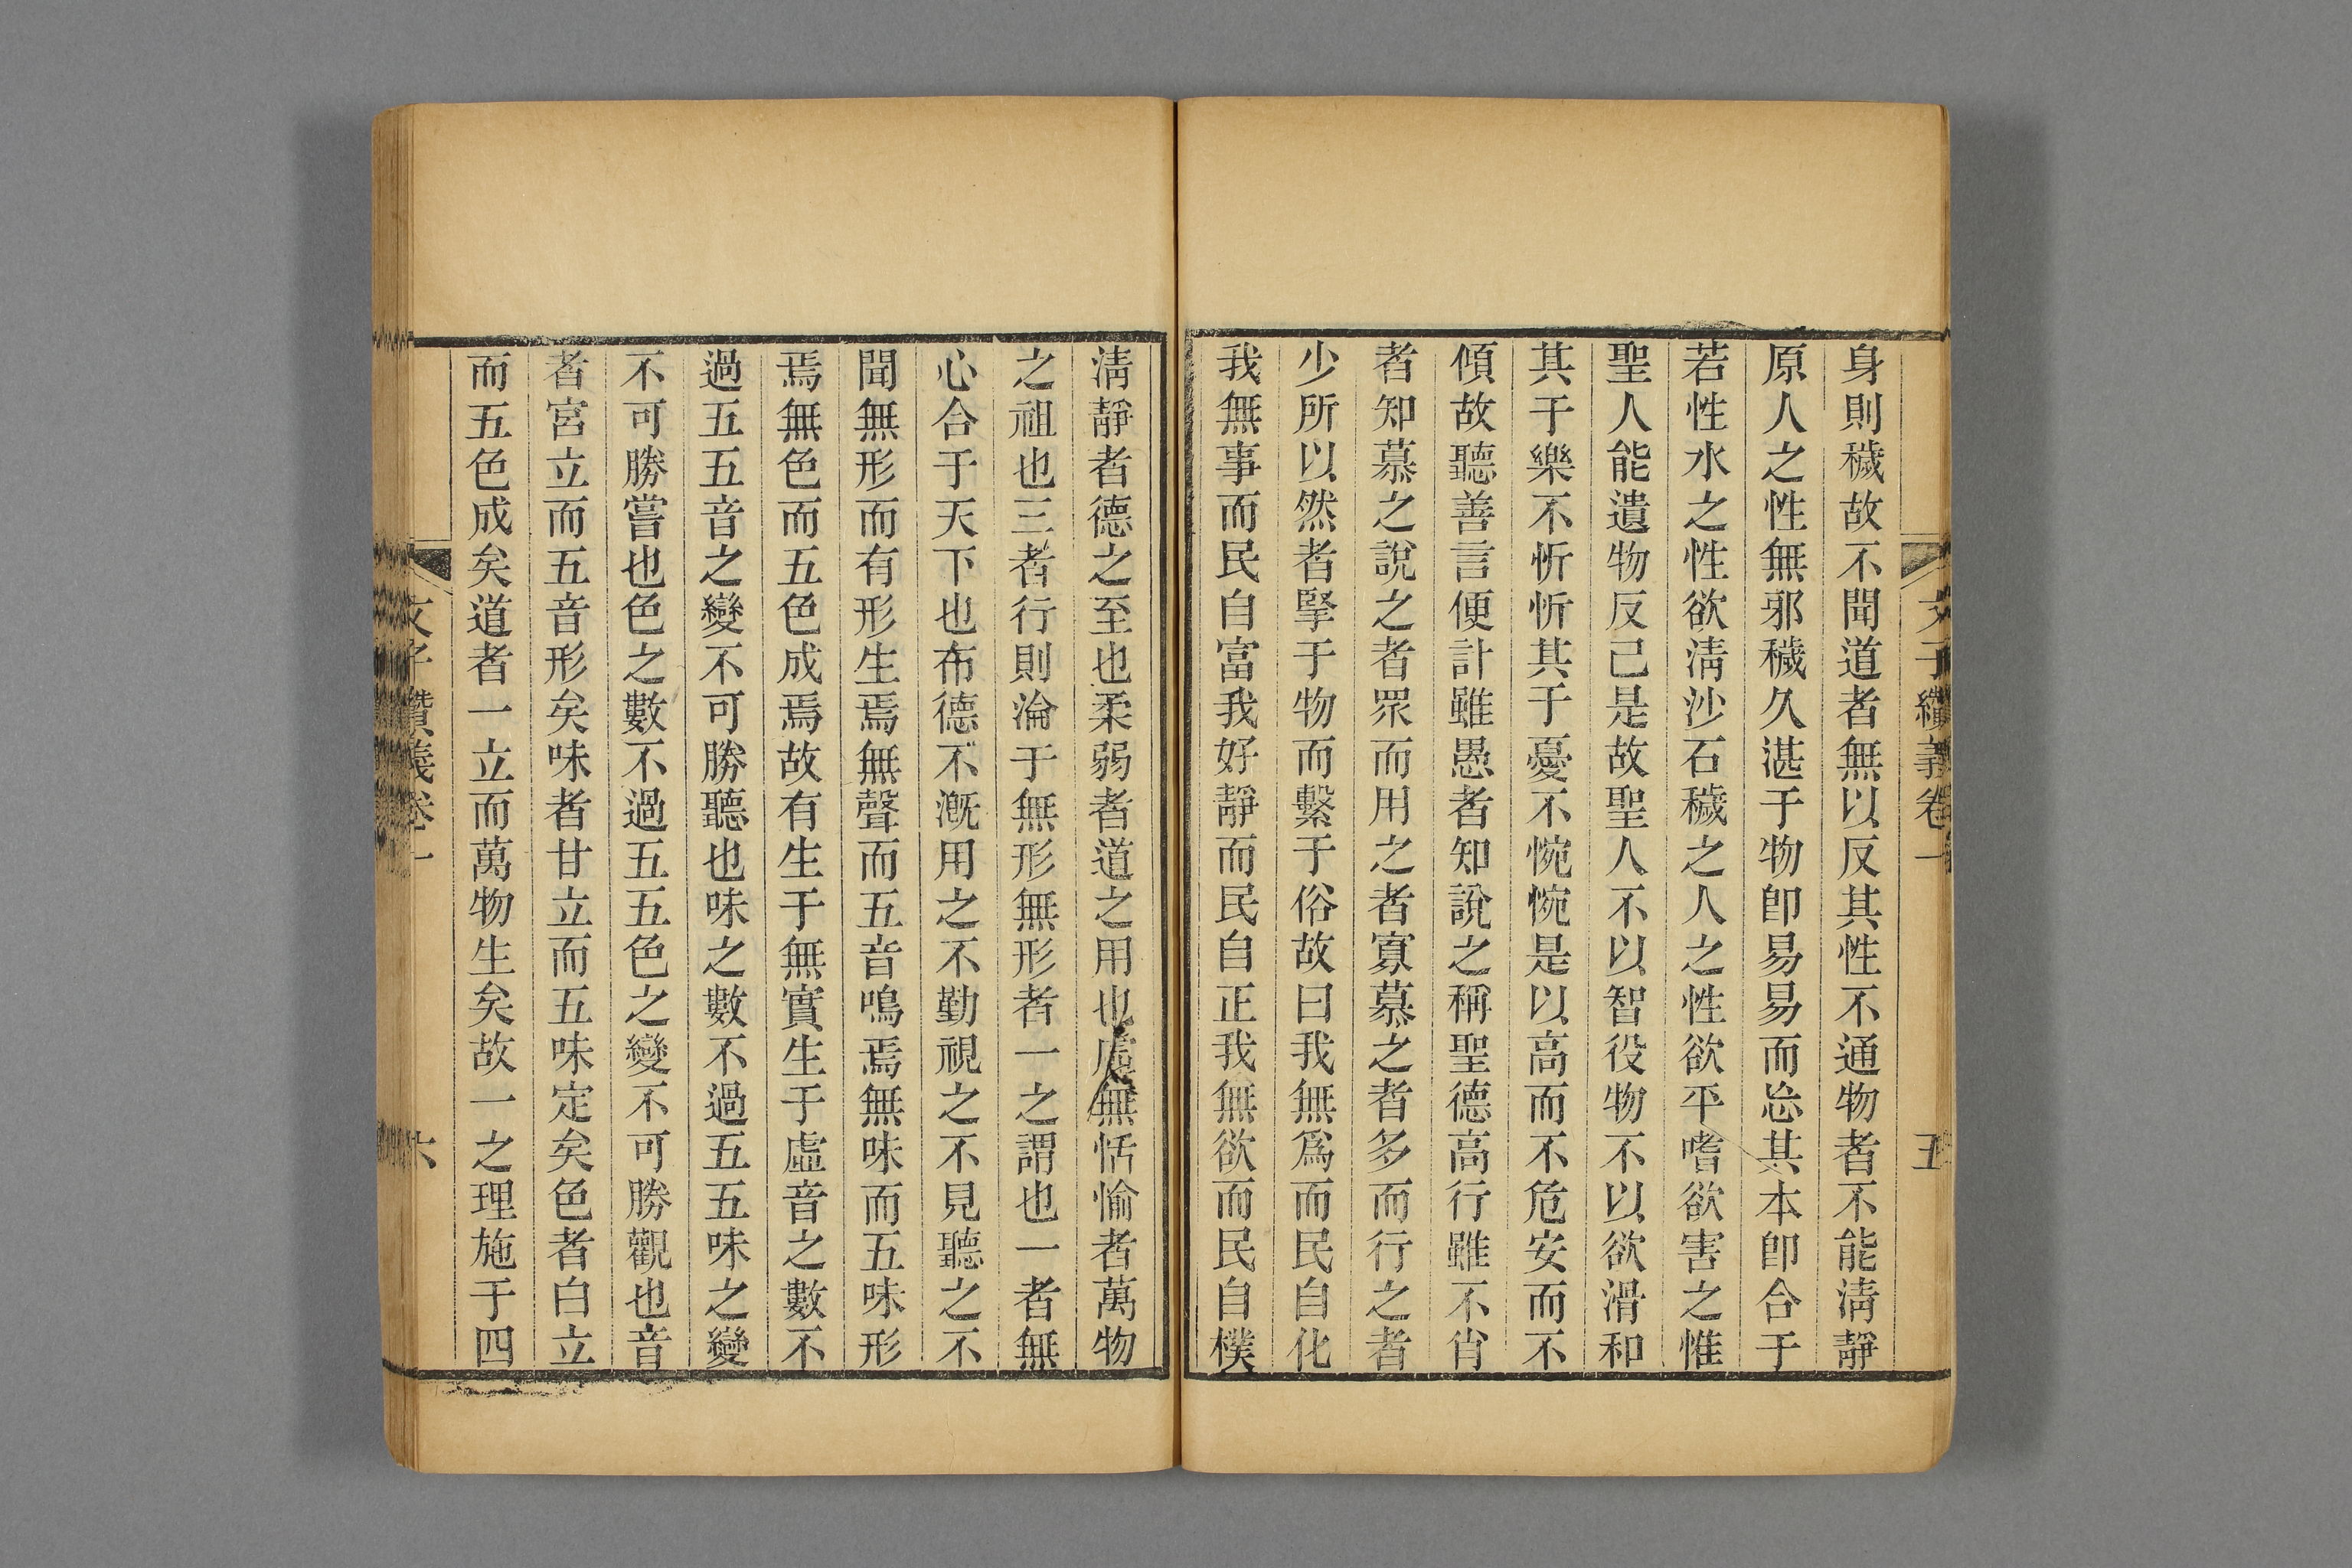 文子纘義卷一 五
身則穢故不聞道者無以反其性不通物者不能淸靜
原人之性無邪穢久湛于物卽易易而忘其本卽合于
若性水之性欲淸沙石穢之人之性欲平嗜欲害之惟
聖人能遺物反己是故聖人不以智役物不以欲滑和
其于樂不忻忻其于憂不惋惋是以高而不危安而不
傾故聽善言便計雖愚者知說之稱聖德高行雖不肖
者知慕之說之者眾而用之者寡慕之者多而行之者
少所以然者掔于物而繫于俗故曰我無爲而民自化
我無事而民自富我好靜而民自正我無欲而民自樸
淸靜者德之至也柔弱者道之用也虛無恬愉者萬物
之祖也三者行則淪于無形無形者一之謂也一者無
心合于天下也布德不漑用之不勤視之不見聽之不
聞無形而有形生焉無聲而五音鳴焉無味而五味形
焉無色而五色成焉故有生于無實生于虛音之數不
過五五音之變不可勝聽也味之數不過五五味之變
不可勝嘗也色之數不過五五色之變不可勝觀也音
者宮立而五音形矣味者甘立而五味定矣色者白立
而五色成矣道者一立而萬物生矣故一之理施于四
文子纘義卷一 六